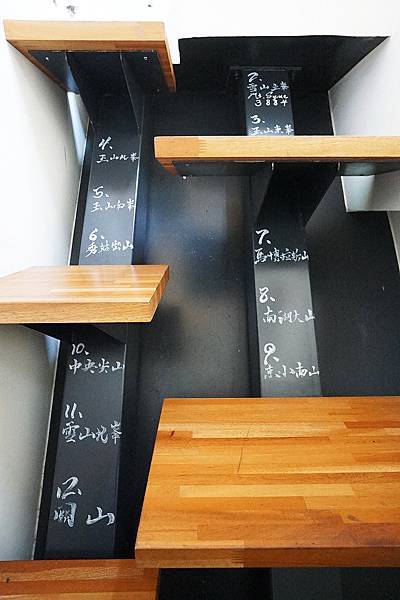 2、
雪山主峯
3884
3、
玉山東峯
4、
玉山北峯
5、
玉山南峯
6、
秀姑巒山
7、
馬博拉斯山
8、
南湖大山
9、
東小南山
10、
中央尖山
11、
雪山北峯
12、
關山